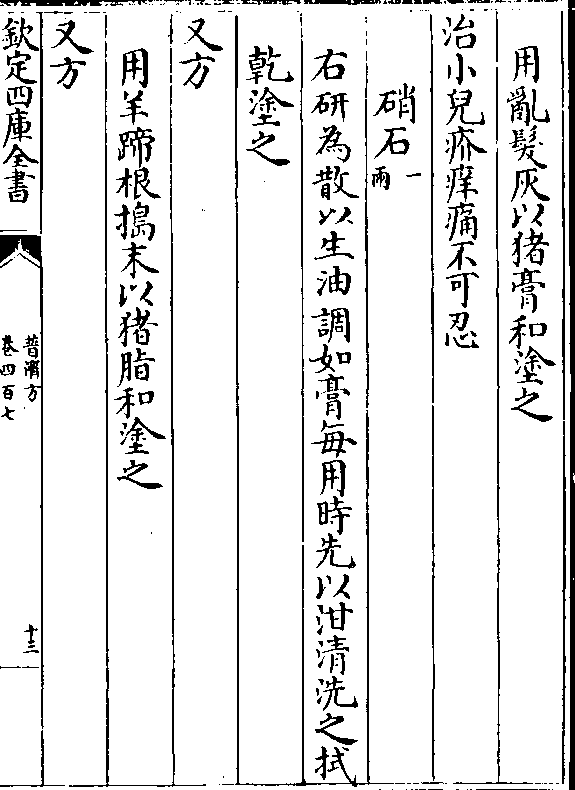 用亂髮灰以猪膏和塗之
治小兒疥痒痛不可忍
硝石一兩
右研為散以生油調如膏每用時先以泔清洗之拭
乾塗之
又方
用羊蹄根搗末以猪脂和塗之
又方
欽定四庫全書
普濟方
卷四百七
十三